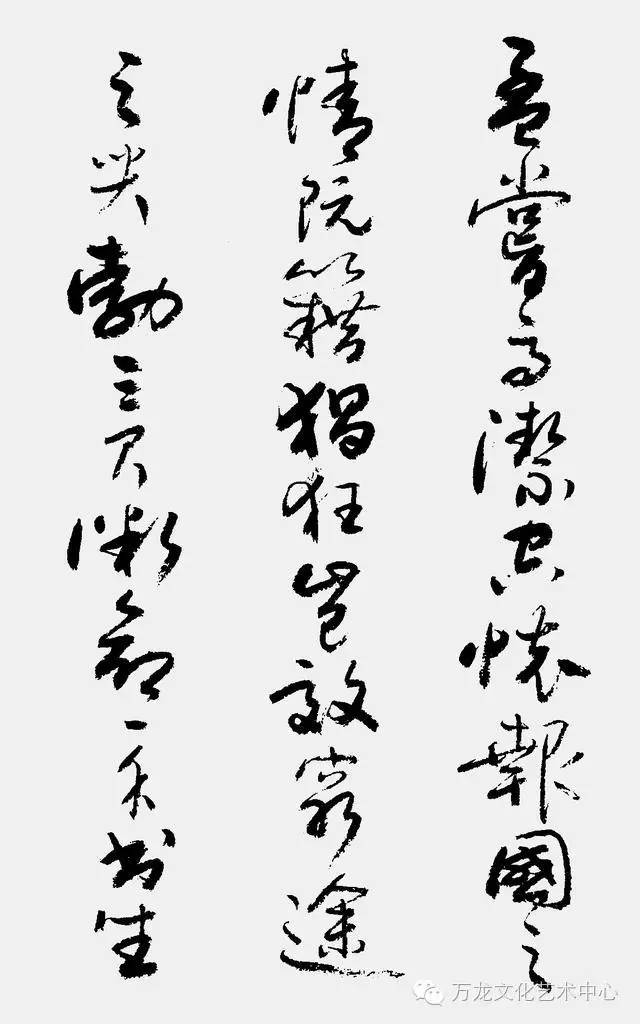 孟嘗高潔空懷報國之
情阮籍猖狂豈效窮途
之哭勃三尺微命一介书生
万龙文化艺术中心